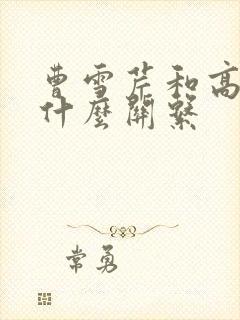 曹雪芹和高
什麼關繫
常勇